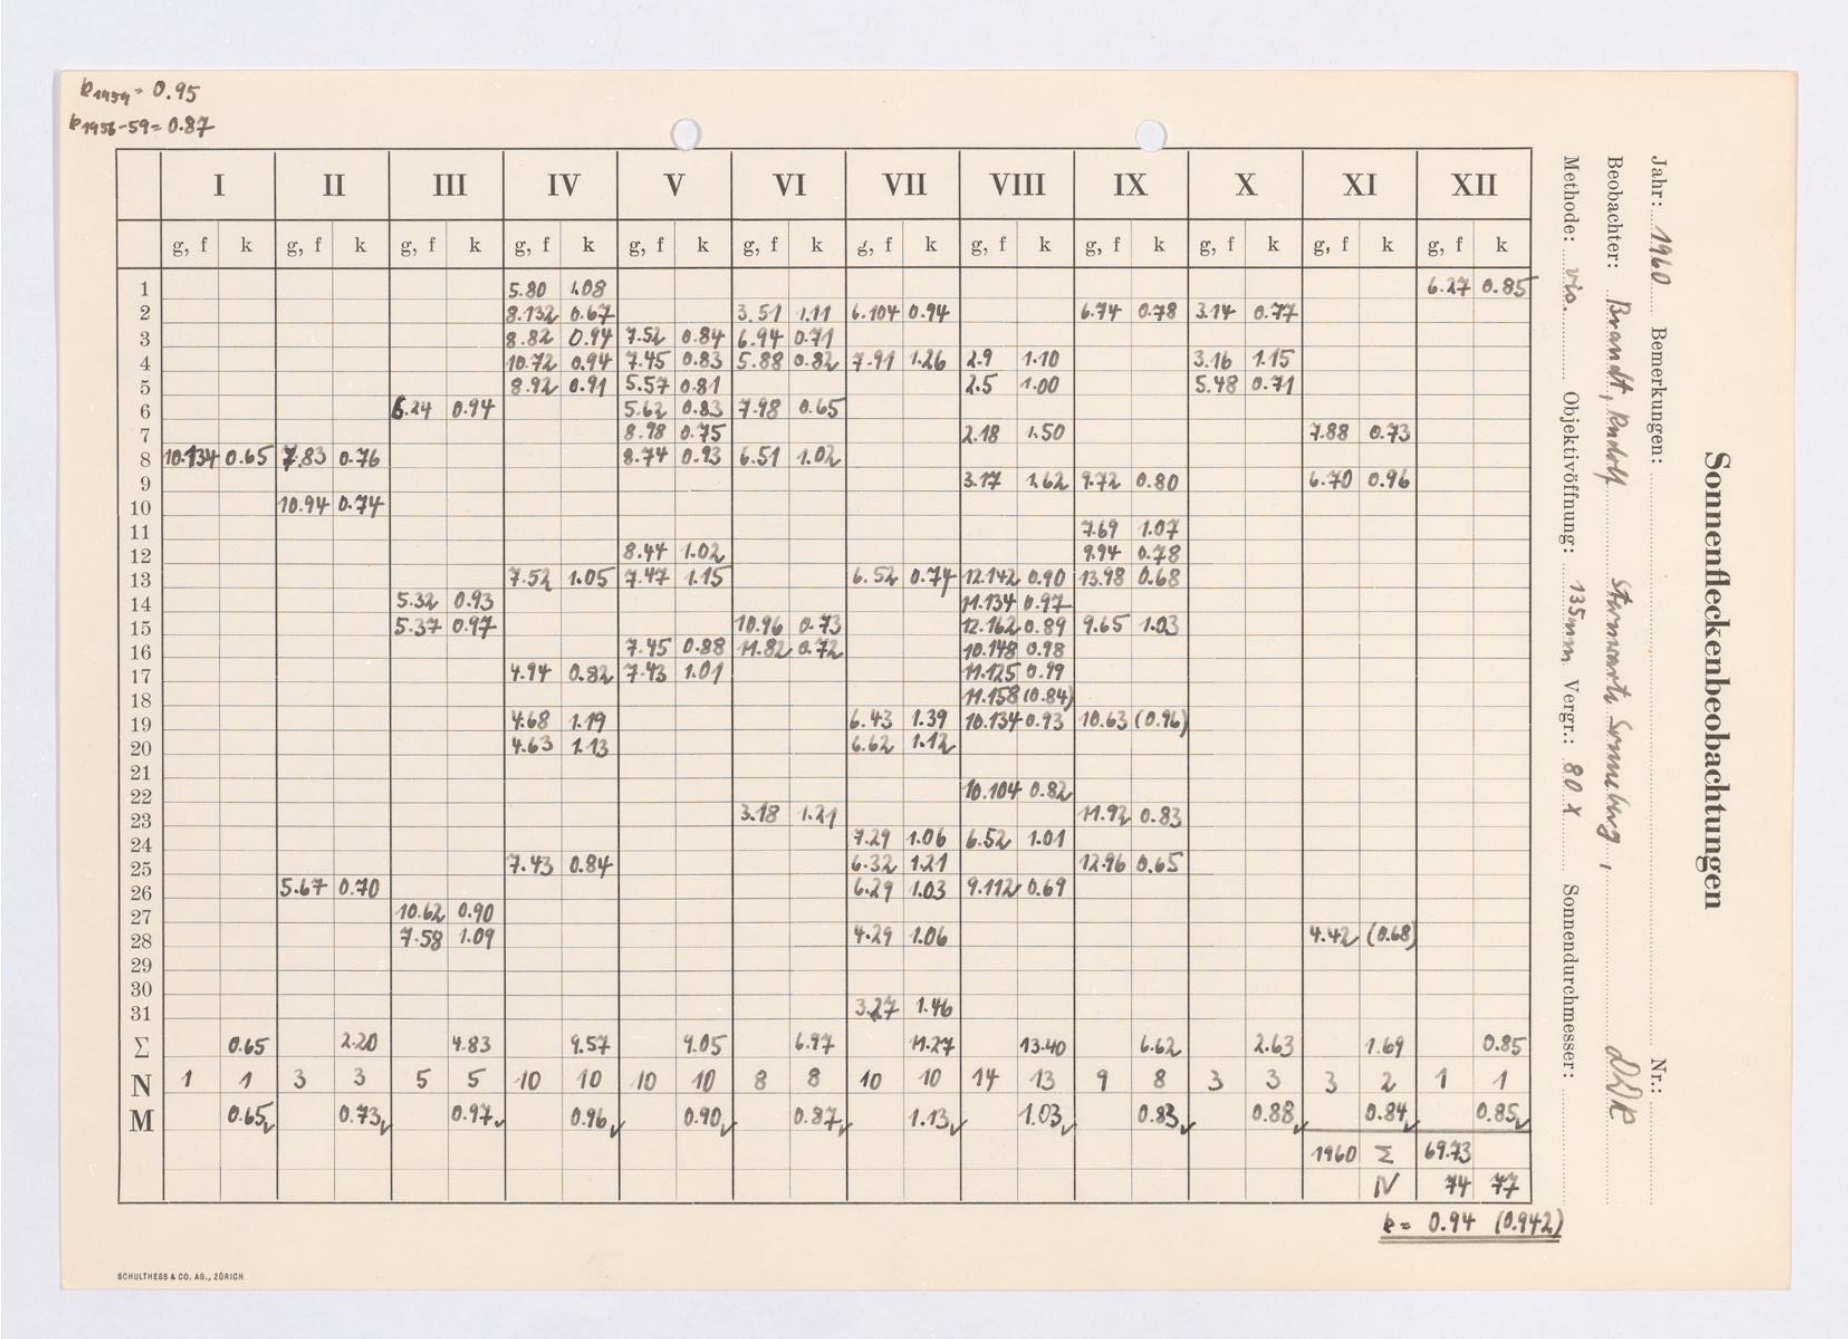 k1959 = 0.95
k1956-59 = 0.87
Sonnenfleckenbeobachtungen
Jahr: 1960 Bemerkungen: Nr.:
Beobachter: Brandt, Rudolf Sternwarte Sonneberg, DDR
Methode: vis. Objektivöffnung: 135mm Vergr.: 80 x Sonnendurchmesser:
I II III IV V VI VII VIII IX X XI XII
g, f k g, f k g, f k g, f k g, f k g, f k g, f k g, f k g, f k g, f k g, f k g, f k
1 5.80 1.08 6.27 0.85
2 8.132 0.67 3.51 1.11 6.104 0.94 6.74 0.78 3.14 0.77
3 8.82 0.94 7.52 0.84 6.94 0.71
4 10.72 0.94 7.45 0.83 5.88 0.82 7.91 1.26 2.9 1.10 3.16 1.15
5 8.92 0.91 5.57 0.81 2.5 1.00 5.48 0.71
6 6.24 0.94 5.62 0.83 7.98 0.65
7 8.98 0.75 2.18 1.50 7.88 0.73
8 10.134 0.65 7.83 0.76 8.74 0.93 6.51 1.02
9 3.17 1.62 9.72 0.80 6.70 0.96
10 10.94 0.74
11 7.69 1.07
12 8.44 1.02 9.94 0.78
13 7.52 1.05 7.47 1.15 6.52 0.74 12.142 0.90 13.98 0.68
14 5.32 0.93 11.134 0.97
15 5.37 0.97 10.96 0.73 12.162 0.89 9.65 1.03
16 7.45 0.88 11.82 0.72 10.148 0.98
17 4.94 0.82 7.43 1.01 11.125 0.99
18 11.158 (0.84)
19 4.68 1.19 6.43 1.39 10.134 0.93 10.63 (0.96)
20 4.63 1.13 6.62 1.12
21
22 10.104 0.82
23 3.18 1.21 11.92 0.83
24 7.29 1.06 6.52 1.01
25 7.43 0.84 6.32 1.21 12.96 0.65
26 5.67 0.70 6.29 1.03 9.112 0.69
27 10.62 0.90
28 7.58 1.09 4.29 1.06 4.42 (0.68)
29
30
31 3.27 1.46
Σ 0.65 2.20 4.83 9.57 9.05 6.97 11.27 13.40 6.62 2.63 1.69 0.85
N 1 1 3 3 5 5 10 10 10 10 8 8 10 10 14 13 9 8 3 3 3 2 1 1
M 0.65 0.73 0.97 0.96 0.90 0.87 1.13 1.03 0.83 0.88 0.84 0.85
1960 Σ 69.73
N 74 77
k = 0.94 (0.942)
SCHULTHESS & CO. AG., ZÜRICH